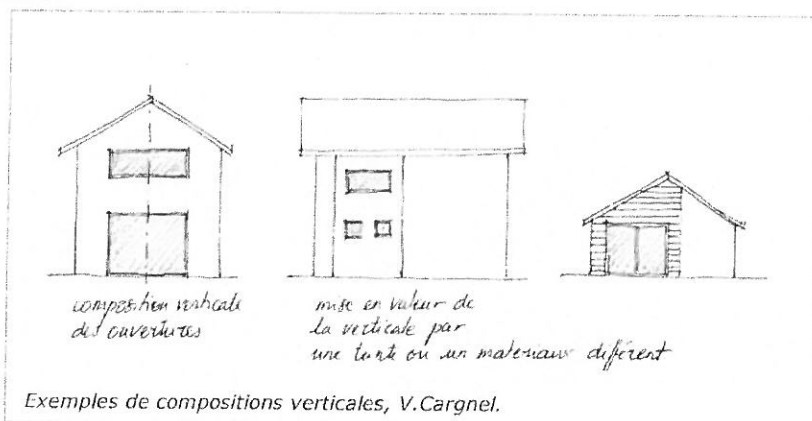 composition verticale
des ouvertures
mise en valeur de
la verticale par
une teinte ou un materiaux différent
Exemples de compositions verticales, V.Cargnel.